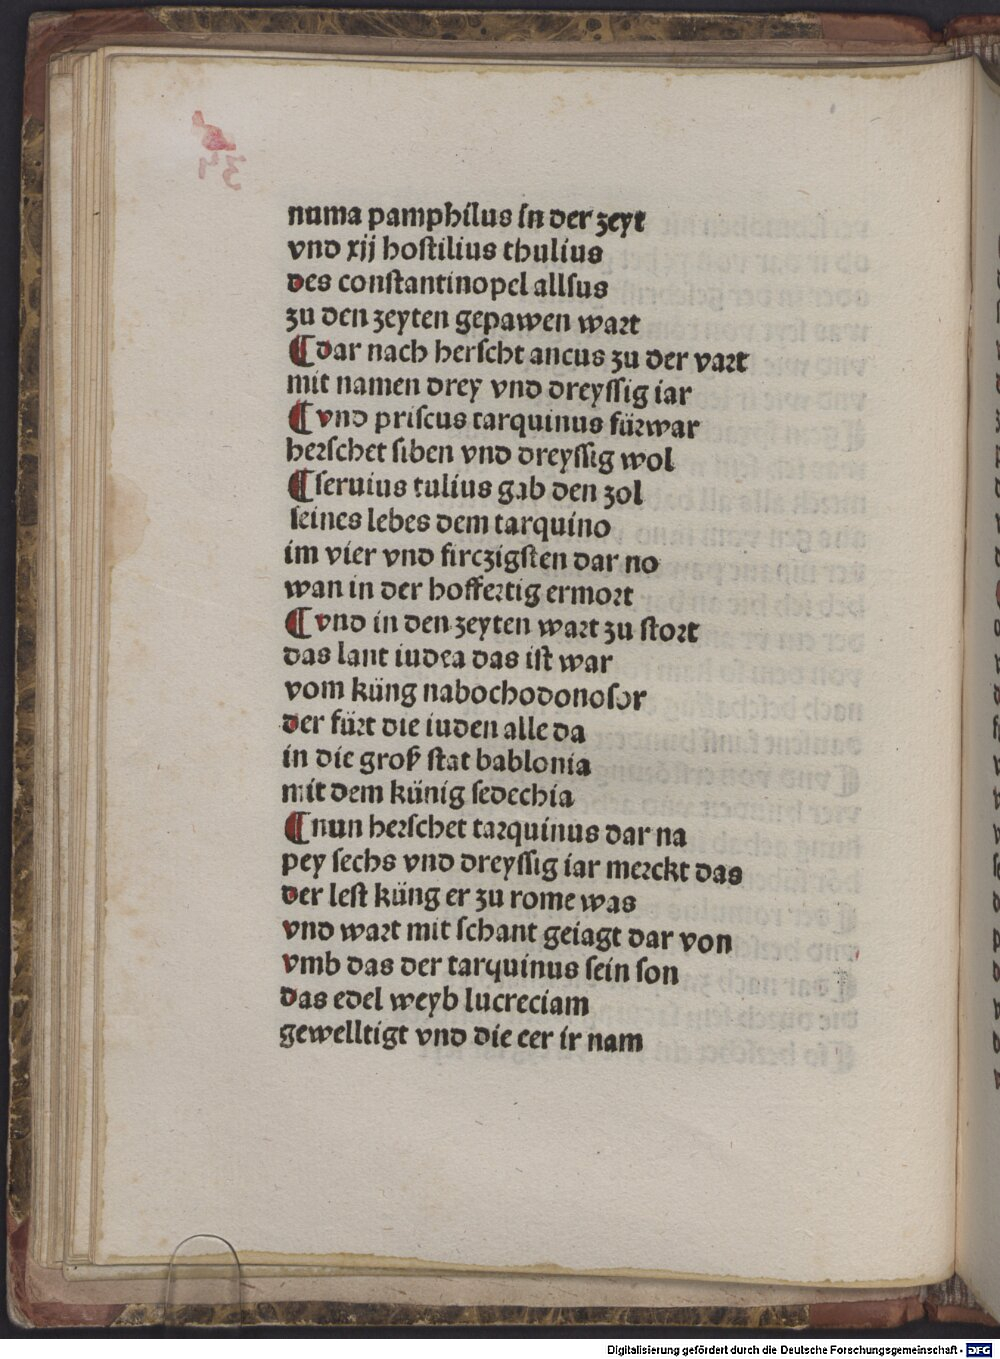 numa pamphilus in der zeyt
vnd xij hostilius thulius
des constantinopel allsus
zu den zeyten gepawen wart
¶ dar nach herscht ancus zu der vart
mit namen drey vnd dreyssig iar
¶ vnd priscus tarquinus fürwar
herschet siben vnd dreyssig wol
¶ seruius tulius gab den zol
seines lebes dem tarquino
im vier vnd firczigsten dar no
wan in der hoffertig ermort
¶ vnd in den zeyten wart zu stort
das lant iudea das ist war
vom küng nabochodonosor
der fürt die iuden alle da
in die groß stat bablonia
mit dem künig sedechia
¶ nun herschet tarquinus dar na
pey sechs vnd dreyssig iar merckt das
der lest küng er zu rome was
vnd wart mit schant geiagt dar von
vmb das der tarquinus sein son
das edel weyb lucreciam
gewelltigt vnd die eer ir nam
Digitalisierung gefördert durch die Deutsche Forschungsgemeinschaft - DFG